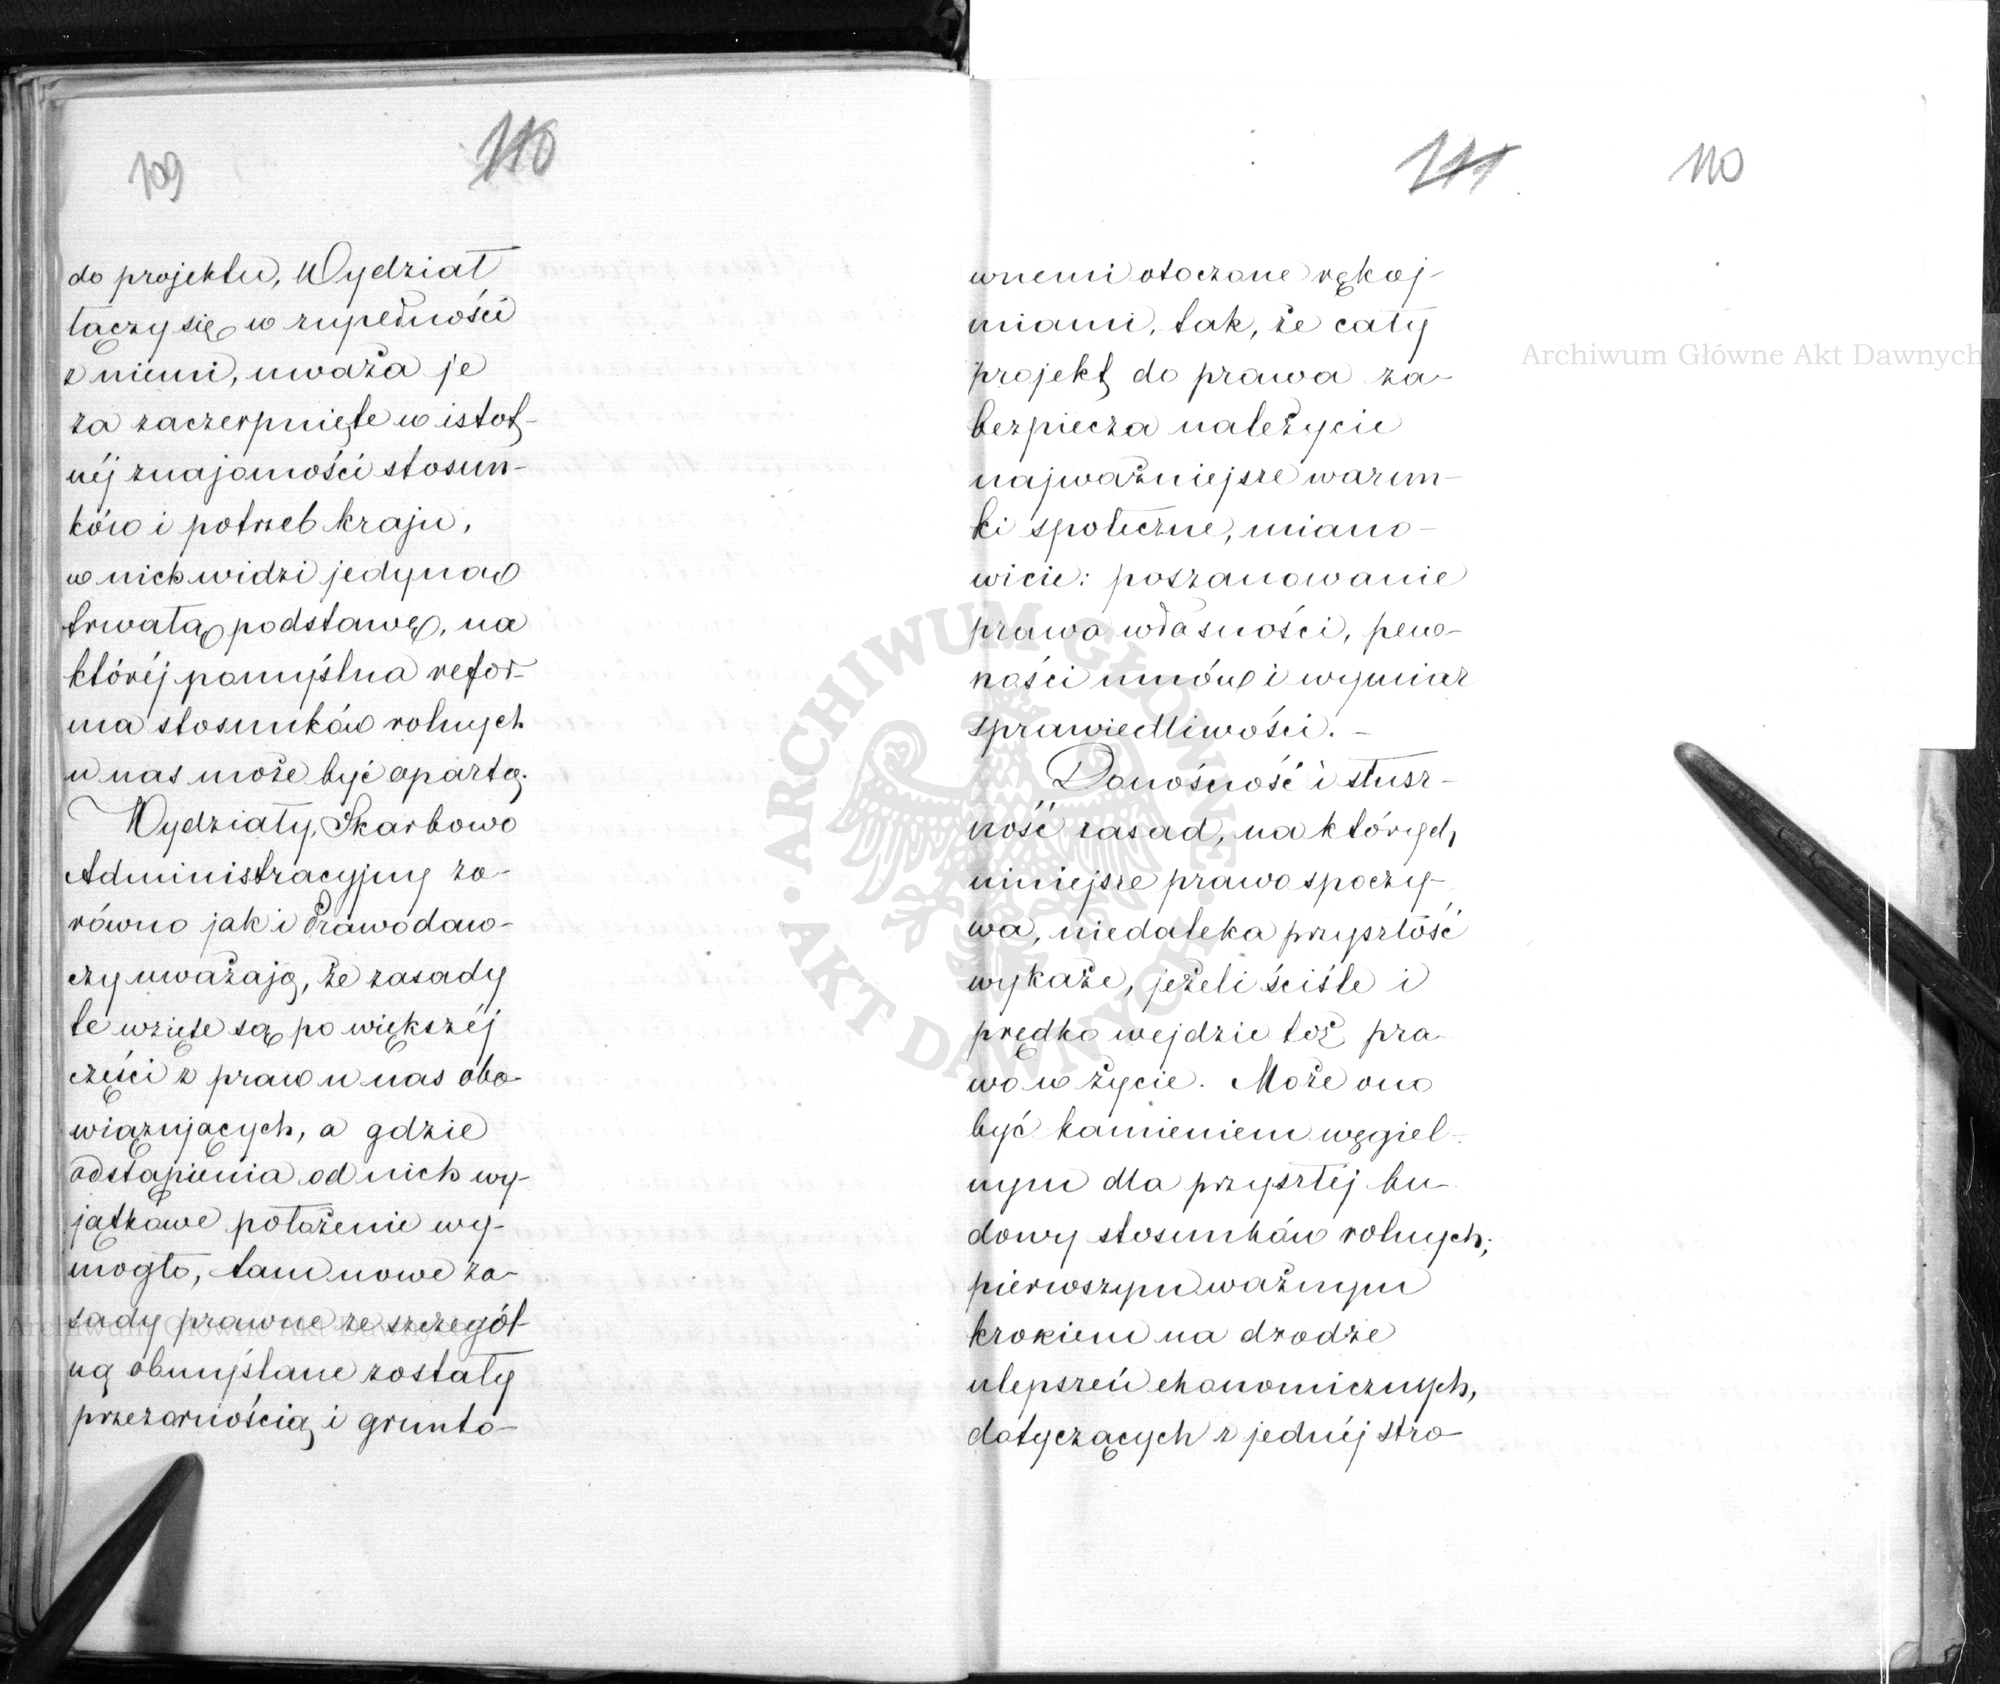 109
110
do projektu, Wydział
łączy się w zupełności
z niemi, uważa je
za zaczerpnięte w istot-
néj znajomości stosun-
ków i potrzeb kraju,
w nich widzi jedyną
trwałą podstawę, na
któréj pomyślna refor-
ma stosunków rolnych
u nas może być opartą.
Wydziały, Skarbowo
Administracyjny za-
równo jak i Prawodaw-
czy uważają, że zasady
te wzięte są po większéj
części z praw u nas obo-
wiązujących, a gdzie
odstąpienia od nich wy-
jątkowe położenie wy-
mogło, tam nowe za-
sady prawne ze szczegól-
ną obmyślane zostały
przezornością i grunto-
111
110
wnemi otoczone rękoj-
miami, tak, że cały
projekt do prawa za-
bezpiecza należycie
najważniejsze warun-
ki społeczne, miano-
wicie: poszanowanie
prawa własności, pew-
ności umów i wymiar
sprawiedliwości. -
Donośność i słusz-
ność zasad, na których
niniejsze prawo spoczy-
wa, niedaleka przyszłość
wykaże, jeżeli ściśle i
prędko wejdzie toż pra-
wo w życie. Może ono
być kamieniem węgiel-
nym dla przyszłéj bu-
dowy stosunków rolnych;
pierwszym ważnym
krokiem na drodze
ulepszeń ekonomicznych,
dotyczących z jednéj stro-
Archiwum Główne Akt Dawnych
Archiwum Główne Akt Dawnych
ARCHIWUM GŁÓWNE · AKT DAWNYCH ·